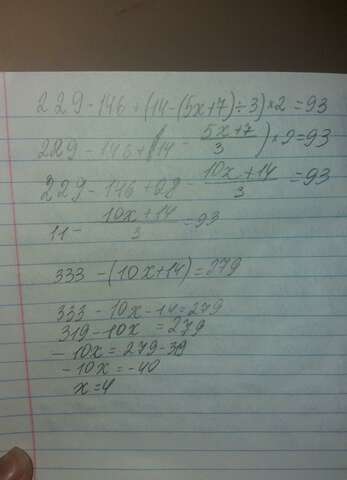 229-146+(14-(5x+7)÷3)*2=93
229-146+(14-5x+7/3)*2=93
229-146+28-10x+14/3=93
11-10x+14/3=93
333-(10x+14)=279
333-10x-14=279
319-10x=279
-10x=279-319
-10x=-40
x=4